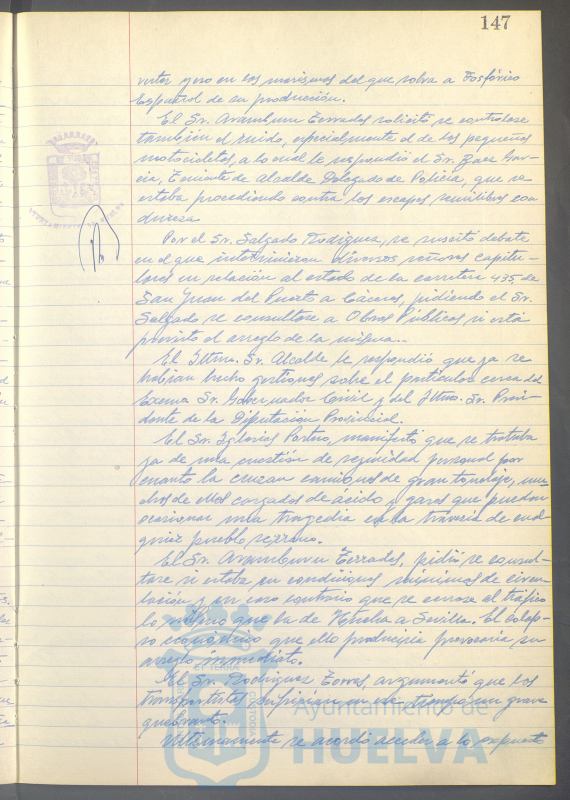 147
verter yeso en las marismas del que sobra a Fosfórico
Español de su producción.
El Sr. Aramburu Terrades solicitó se controlase
también el ruido, especialmente el de las pequeñas
motocicletas, a lo cual le respondió el Sr. Baez Gar-
cia, Teniente de Alcalde Delegado de Policia, que se
estaba procediendo contra los escapes sensibles con
dureza
Por el Sr. Salgado Rodriguez, se suscitó debate
en el que intervinieron diversos señores capitu-
lares en relación al estado de la carretera 435, de
San Juan del Puerto a Cáceres, pidiendo el Sr.
Salgado se consultase a Obras Públicas si está
previsto el arreglo de la misma.-
El Iltmo. Sr. Alcalde le respondió que ya se
habian hecho gestiones sobre el particular cerca del
Excmo Sr. Gobernador Civil y del Iltmo. Sr. Presi-
dente de la Diputación Provincial.
El Sr. Iglesias Portero, manifestó que se trataba
ya de una cuestión de seguridad personal por
cuanto la cruzan camiones de gran tonelaje, mu-
chos de ellos cargados de ácido y gases que puedan
ocasionar una tragedia en la travesia de cual
quier pueblo serrano.
El Sr. Aramburu Terrades, pidió se consul-
tase si estaba en condiciones minimas de circu-
lación y en caso contrario que se cerrase al tráfico
lo mismo que la de Huelva a Sevilla. El colap-
so económico que ello produciria provocaria su
arreglo inmediato.
El Sr. Rodriguez Torres, argumentó que los
transportistas sufririan en ese tiempo un grave
quebranto.
Ultimamente se acordó acceder a lo expuesto
Ayuntamiento de
HUELVA